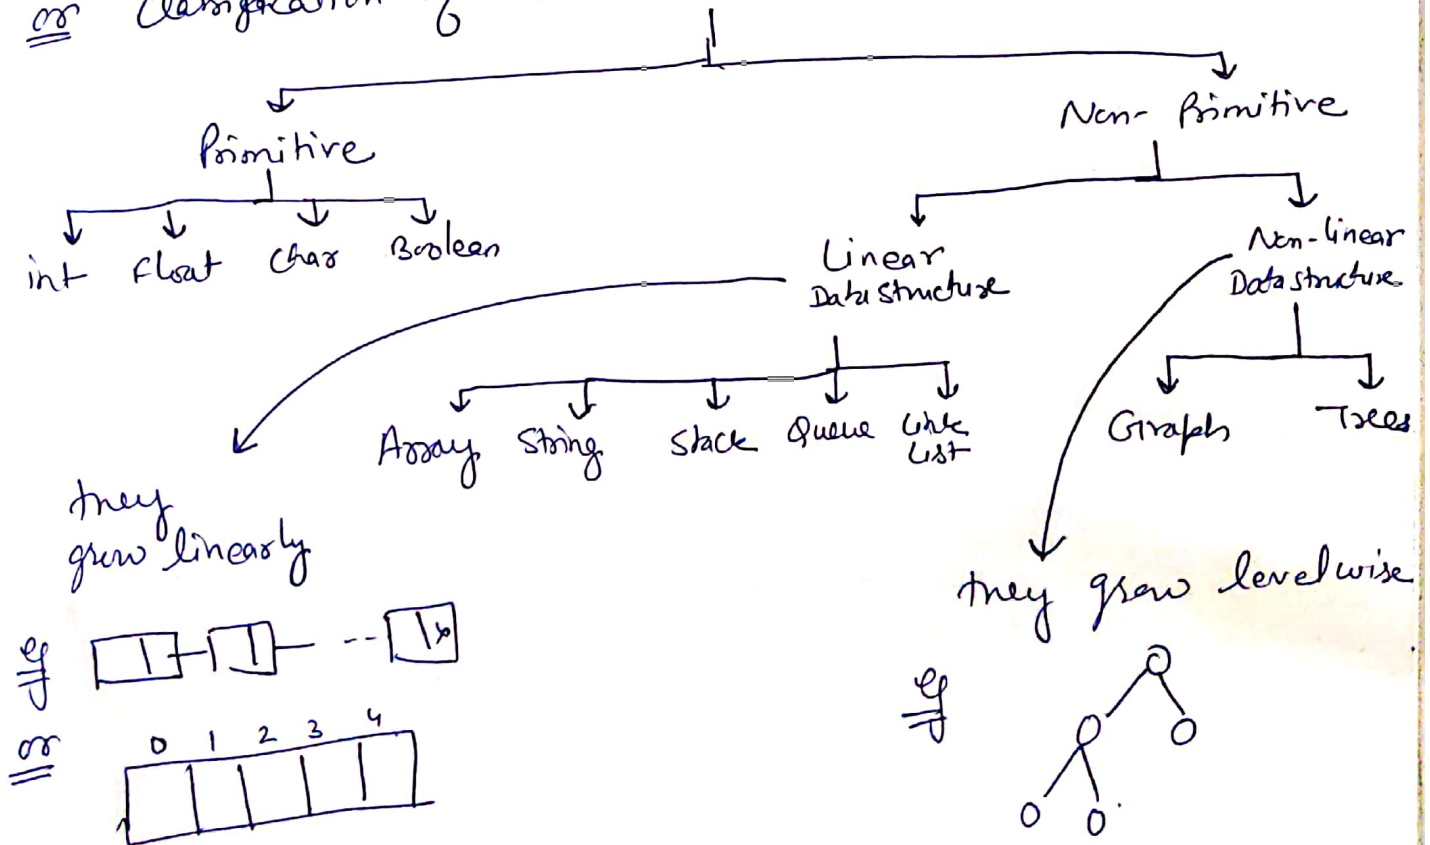 or Classification of
Primitive
Non-Primitive
int Float Char Boolean
Linear
Data Structure
Non-linear
Data structure
Array String Stack Queue Link
List
Graph Trees
they
grow linearly
they grow levelwise
eg
eg
or 0 1 2 3 4